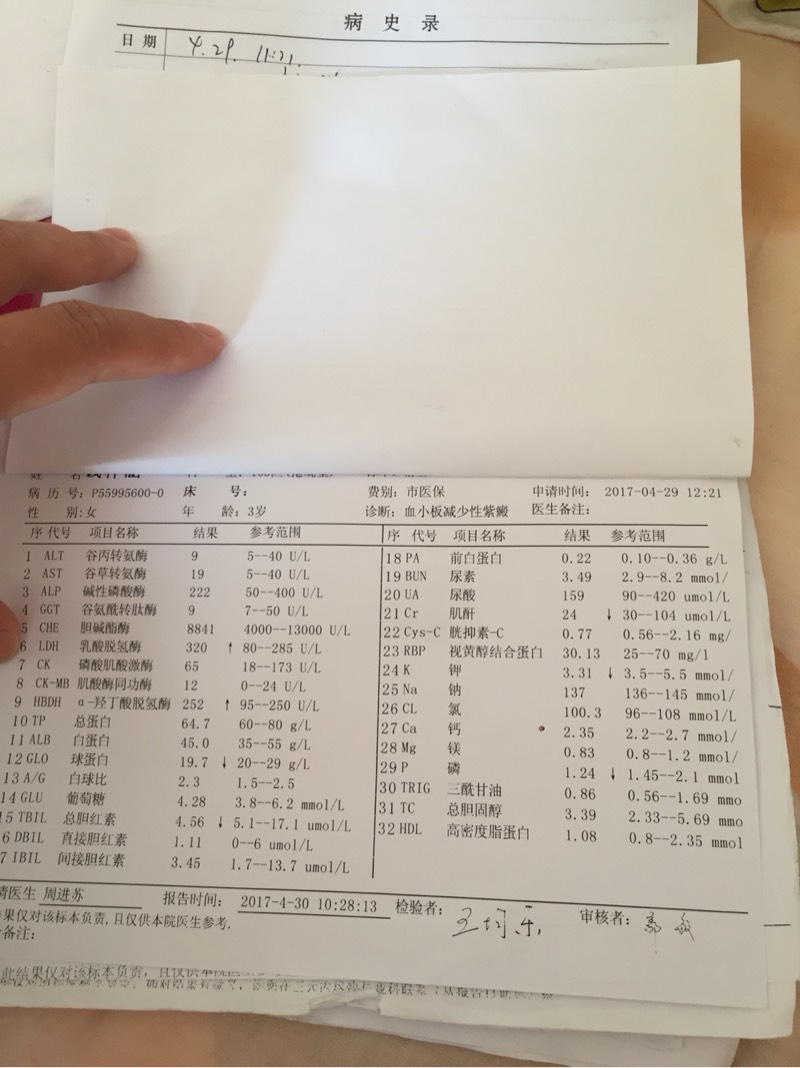 病 史 录
日 期 4.29. 11:21
病 历 号: P55995600-0 床 号: 费别: 市医保 申请时间: 2017-04-29 12:21
性 别:女 年 龄: 3岁 诊断: 血小板减少性紫癜 医生备注:
序 代号 项目名称 结果 参考范围
1 ALT 谷丙转氨酶 9 5--40 U/L
2 AST 谷草转氨酶 19 5--40 U/L
3 ALP 碱性磷酸酶 222 50--400 U/L
4 GGT 谷氨酰转肽酶 9 7--50 U/L
5 CHE 胆碱酯酶 8841 4000--13000 U/L
6 LDH 乳酸脱氢酶 320 ↑ 80--285 U/L
7 CK 磷酸肌酸激酶 65 18--173 U/L
8 CK-MB 肌酸酶同功酶 12 0--24 U/L
9 HBDH α-羟丁酸脱氢酶 252 ↑ 95--250 U/L
10 TP 总蛋白 64.7 60--80 g/L
11 ALB 白蛋白 45.0 35--55 g/L
12 GLO 球蛋白 19.7 ↓ 20--29 g/L
13 A/G 白球比 2.3 1.5--2.5
14 GLU 葡萄糖 4.28 3.8--6.2 mmol/L
15 TBIL 总胆红素 4.56 ↓ 5.1--17.1 umol/L
6 DBIL 直接胆红素 1.11 0--6 umol/L
7 IBIL 间接胆红素 3.45 1.7--13.7 umol/L
序 代号 项目名称 结果 参考范围
18 PA 前白蛋白 0.22 0.10--0.36 g/L
19 BUN 尿素 3.49 2.9--8.2 mmol/
20 UA 尿酸 159 90--420 umol/L
21 Cr 肌酐 24 ↓ 30--104 umol/L
22 Cys-C 胱抑素-C 0.77 0.56--2.16 mg/
23 RBP 视黄醇结合蛋白 30.13 25--70 mg/l
24 K 钾 3.31 ↓ 3.5--5.5 mmol/
25 Na 钠 137 136--145 mmol/
26 CL 氯 100.3 96--108 mmol/L
27 Ca 钙 2.35 2.2--2.7 mmol/
28 Mg 镁 0.83 0.8--1.2 mmol/
29 P 磷 1.24 ↓ 1.45--2.1 mmol
30 TRIG 三酰甘油 0.86 0.56--1.69 mmo
31 TC 总胆固醇 3.39 2.33--5.69 mmo
32 HDL 高密度脂蛋白 1.08 0.8--2.35 mmol
请医生 周进苏 报告时间: 2017-4-30 10:28:13 检验者: 审核者:
果仅对该标本负责,且仅供本院医生参考.
备注:
此结果仅对该标本负责, 且仅供本院医